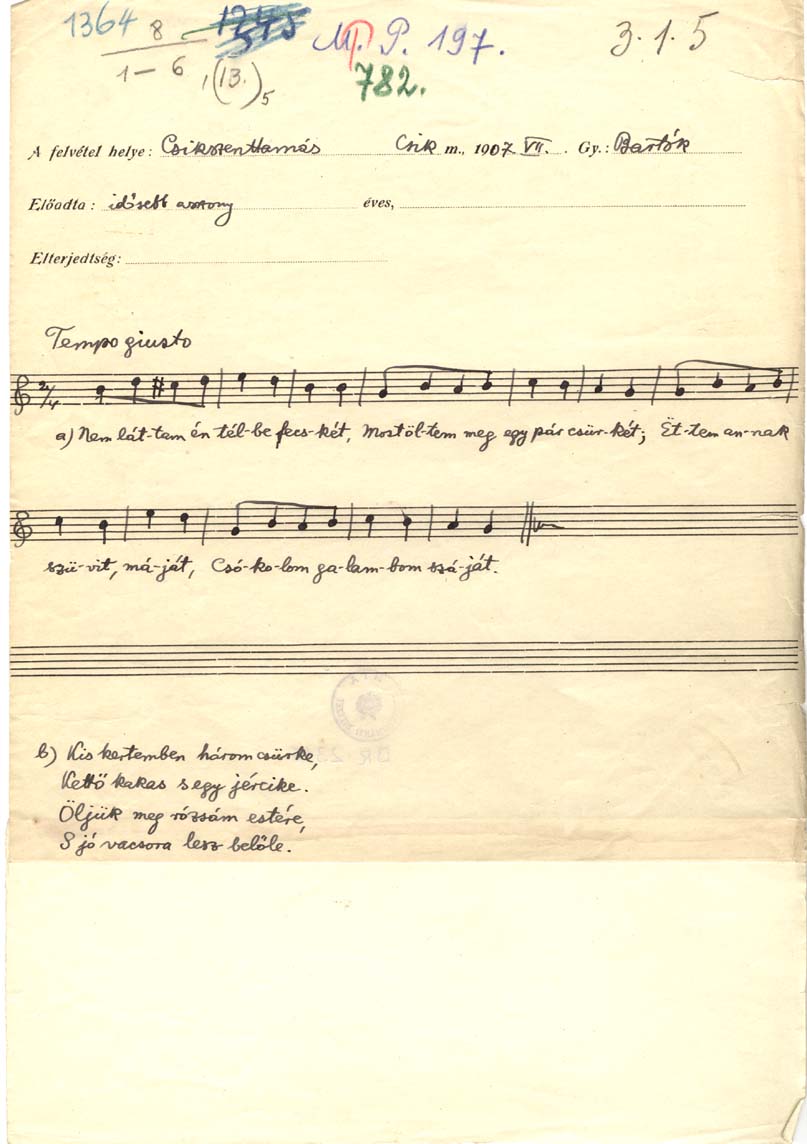 1364 8 M. P. 197. 3·1·5
1–6, (13.)5 782.
A felvétel helye: Csikszenttamás Csik m., 1907. VII. Gy.: Bartók
Előadta: idősebb asszony éves,
Elterjedtség:
Tempo giusto
2/4
a) Nem lát-tam én tél-be fecs-két, Most öl-tem meg egy pár csür-két; Ët-tem an-nak
szü-vit, má-ját, Csó-ko-lom ga-lam-bom szá-ját.
b) Kis kertemben három csürke,
Kettő kakas s egy jércike.
Öljük meg rózsám estére,
S jó vacsora lesz belőle.